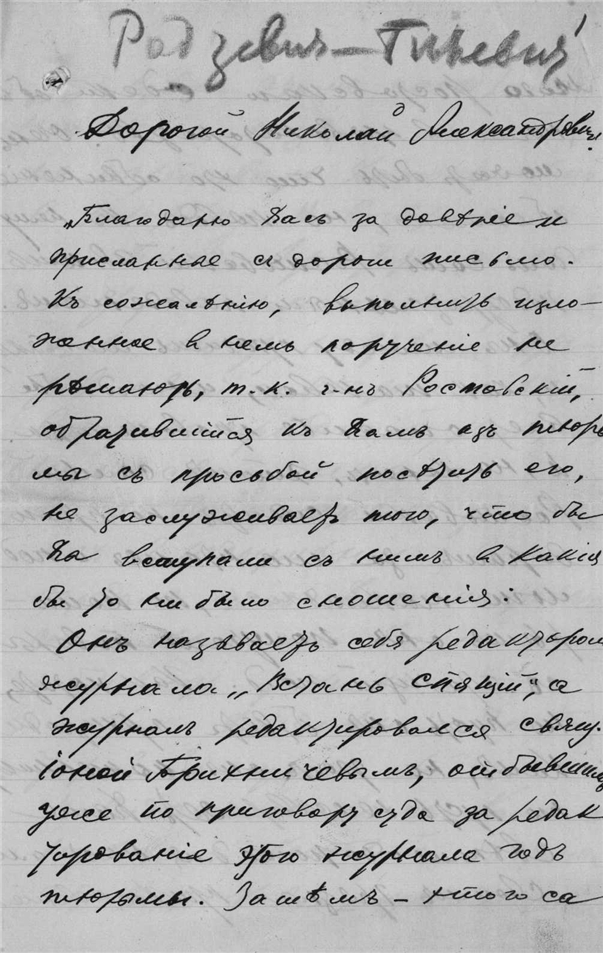 Родзевич-Гиневич
Дорогой Николай Александрович!
„Благодарю Васъ за довѣріе и
присланное съ дороги письмо.
Къ сожалѣнію, выполнить изло-
женное в немъ порученіе не
рѣшаюсь, т. к. г-нъ Ростовскій,
обратившійся къ Вамъ изъ тюрь
мы съ просьбой посѣтить его,
не заслуживаетъ того, что бы
Вы вступали съ нимъ в какія
бы то ни было сношенія:
Онъ называетъ себя редакторомъ
журнала „Встань спящій“, а
журналъ редактировался свящ.
Іоной Брихничевымъ, отбывшимъ
уже по приговору суда за редак
тированіе этого журнала годъ
тюрьмы. Затѣмъ – этого са